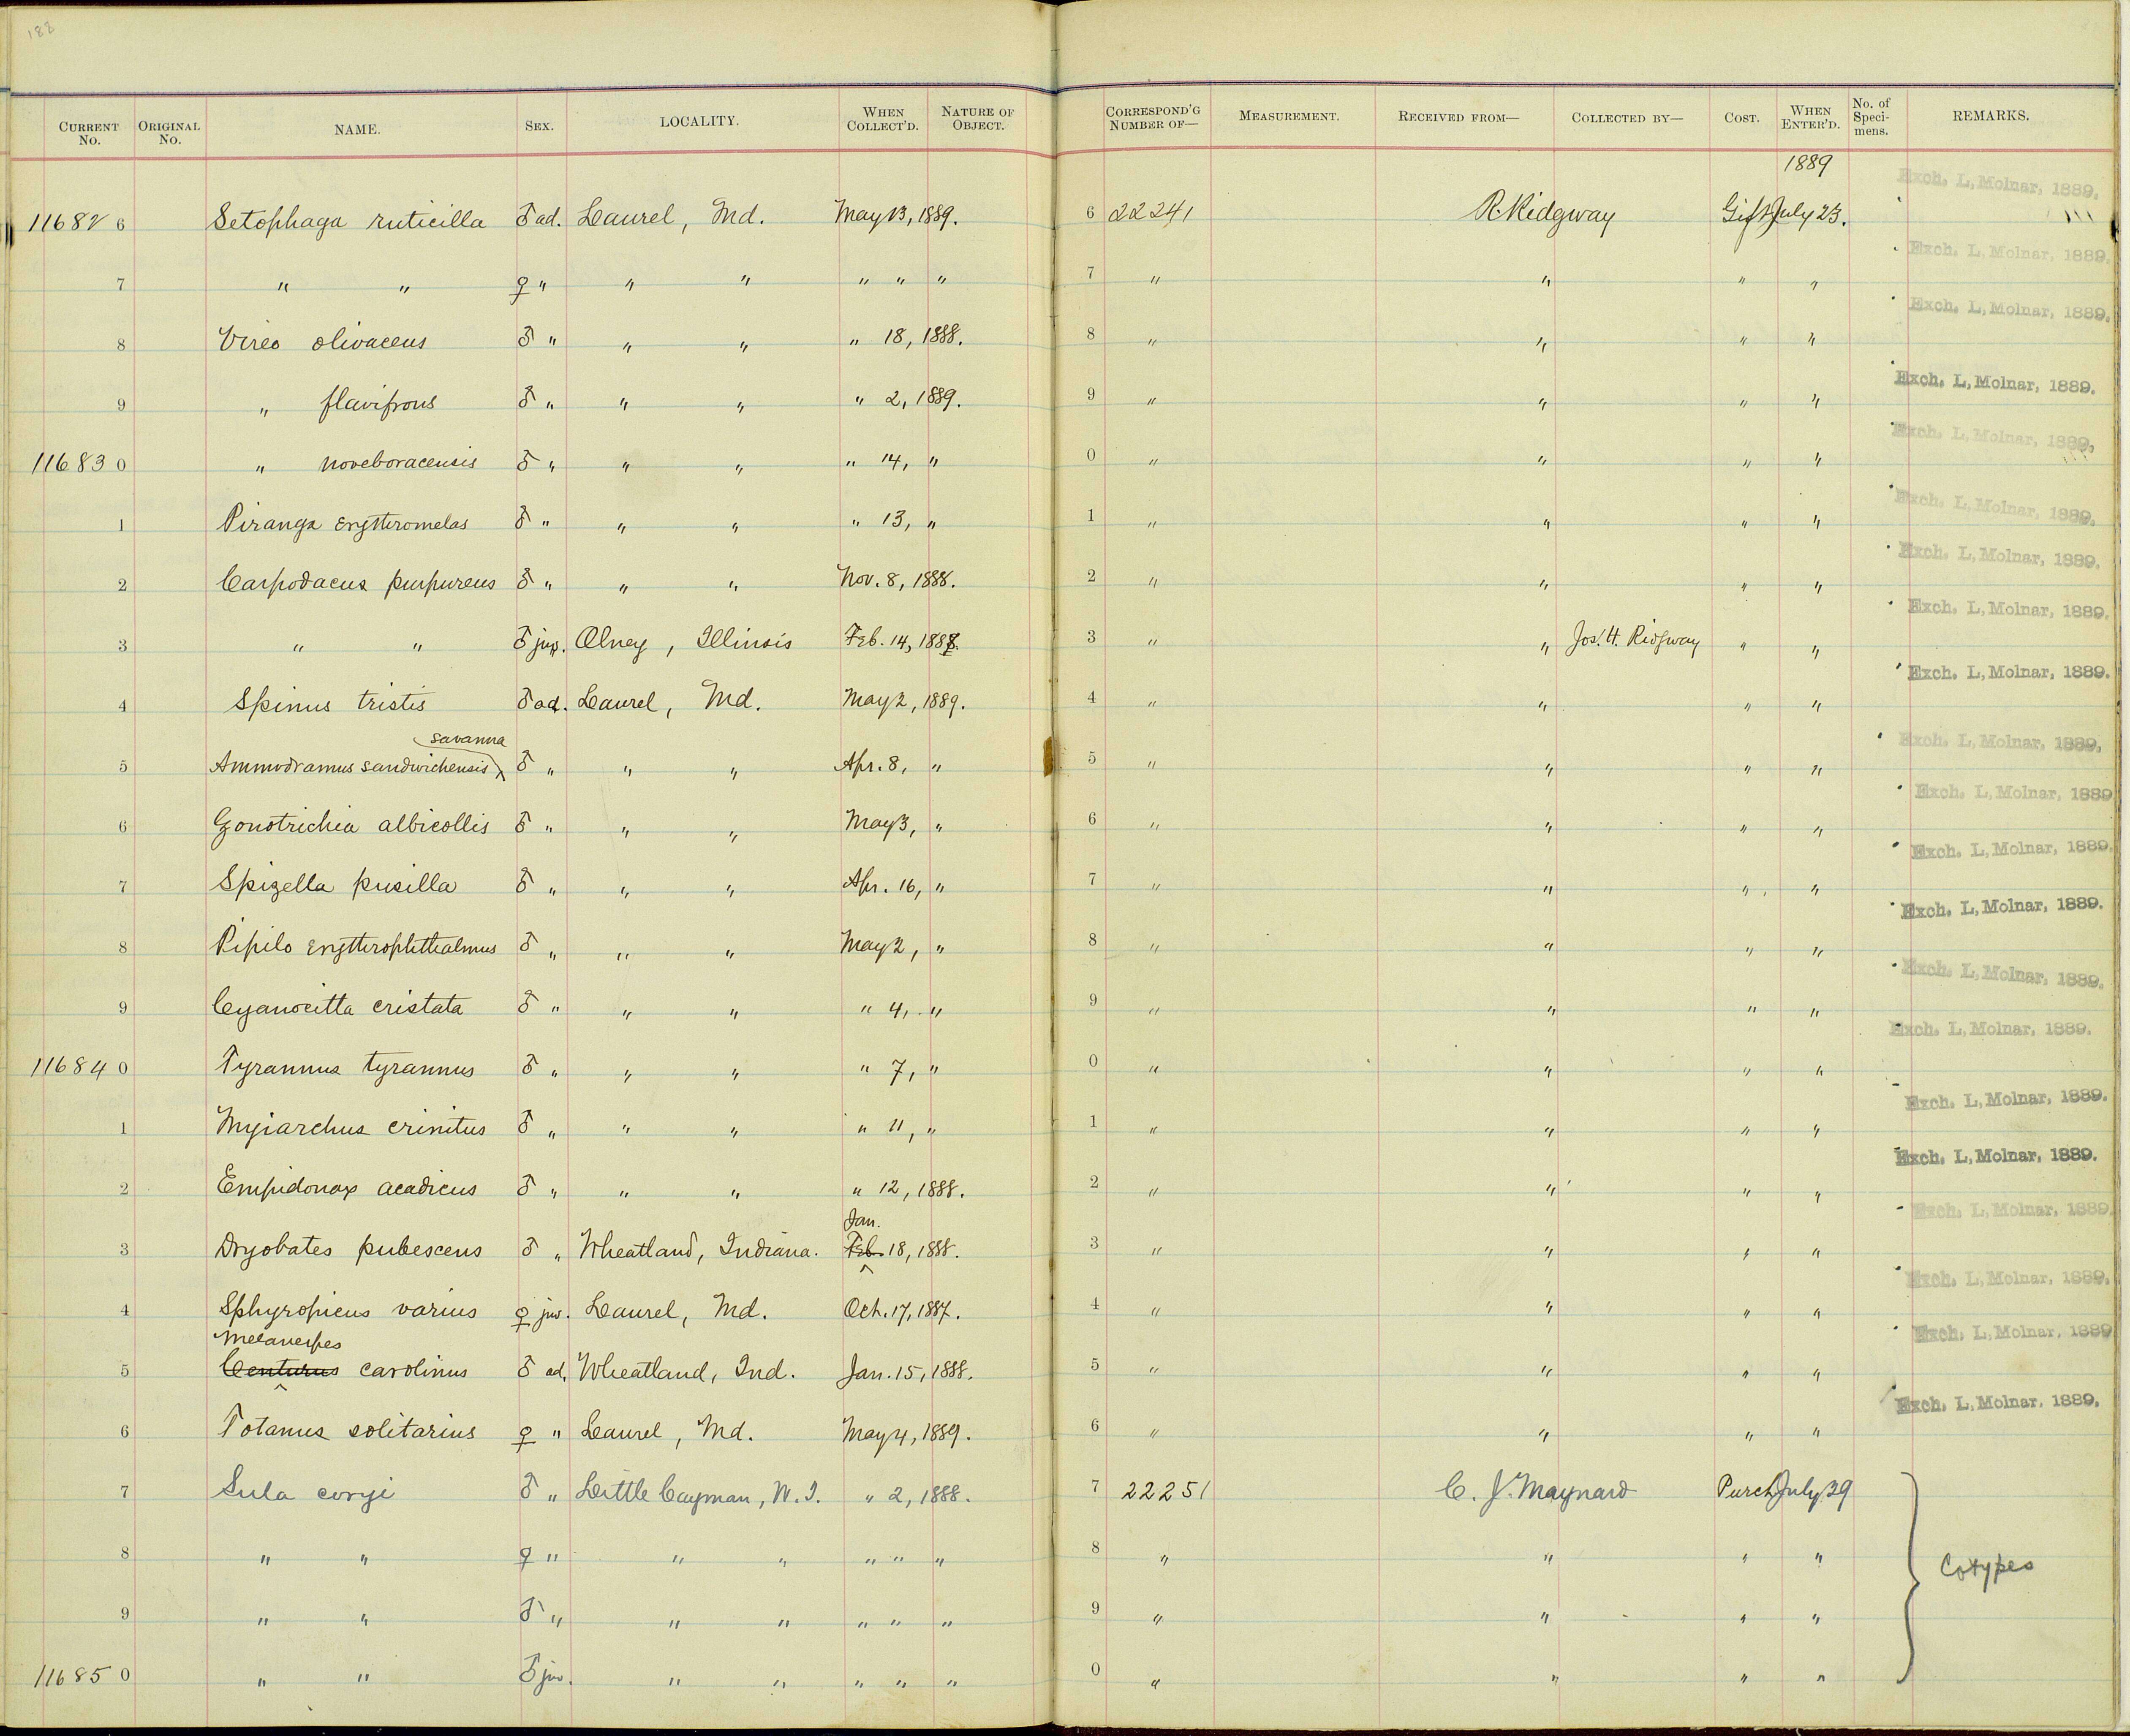 188
CURRENT No. ORIGINAL No. NAME. SEX. LOCALITY. WHEN COLLECT'D. NATURE OF OBJECT. CORRESPOND'G NUMBER OF— MEASUREMENT. RECEIVED FROM— COLLECTED BY— COST. WHEN ENTER'D. No. of Speci-mens. REMARKS.
1889
11682 6 Setophaga ruticilla ♂ ad. Laurel, Md. May 13, 1889. 6 22241 R. Ridgway Gift July 23. Exch. L, Molnar, 1889.
7 " " ♀ " " " " " " 7 " " " " Exch. L, Molnar, 1889.
8 Vireo olivaceus ♂ " " " " 18, 1888. 8 " " " " Exch. L, Molnar, 1889.
9 " flavifrons ♂ " " " " 2, 1889. 9 " " " " Exch. L, Molnar, 1889.
11683 0 " noveboracensis ♂ " " " " 14, " 0 " " " " Exch. L, Molnar, 1889.
1 Piranga erythromelas ♂ " " " " 13, " 1 " " " " Exch. L, Molnar, 1889.
2 Carpodacus purpureus ♂ " " " Nov. 8, 1888. 2 " " " " Exch. L, Molnar, 1889.
3 " " ♂ juv. Olney, Illinois Feb. 14, 1888. 3 " " Jos. H. Ridgway " " Exch. L, Molnar, 1889.
4 Spinus tristis ♂ ad. Laurel, Md. May 2, 1889. 4 " " " " Exch. L, Molnar, 1889.
savanna
5 Ammodramus sandwichensis ♂ " " " Apr. 8, " 5 " " " " Exch. L, Molnar, 1889.
6 Zonotrichia albicollis ♂ " " " May 3, " 6 " " " " Exch. L, Molnar, 1889
7 Spizella pusilla ♂ " " " Apr. 16, " 7 " " " " Exch. L, Molnar, 1889.
8 Pipilo erythrophthalmus ♂ " " " May 2, " 8 " " " " Exch. L, Molnar, 1889.
9 Cyanocitta cristata ♂ " " " " 4, " 9 " " " " Exch. L, Molnar, 1889.
11684 0 Tyrannus tyrannus ♂ " " " " 7, " 0 " " " " Exch. L, Molnar, 1889.
1 Myiarchus crinitus ♂ " " " " 11, " 1 " " " " Exch. L, Molnar, 1889.
2 Empidonax acadicus ♂ " " " " 12, 1888. 2 " " " " Exch. L, Molnar, 1889.
Jan.
3 Dryobates pubescens ♂ " Wheatland, Indiana. Feb. 18, 1888. 3 " " " " Exch. L, Molnar, 1889.
4 Sphyropicus varius ♀ juv. Laurel, Md. Oct. 17, 1887. 4 " " " " Exch. L, Molnar, 1889.
Melanerpes
5 Centurus carolinus ♂ ad. Wheatland, Ind. Jan. 15, 1888. 5 " " " " Exch. L, Molnar, 1889
6 Totanus solitarius ♀ " Laurel, Md. May 4, 1889. 6 " " " " Exch. L, Molnar, 1889.
7 Sula coryi ♂ " Little Cayman, W. I. " 2, 1888. 7 22251 C. J. Maynard Purch July 29
8 " " ♀ " " " " " " 8 " " " " Cotypes
9 " " ♂ " " " " " " 9 " " " "
11685 0 " " ♂ juv. " " " " " 0 " " " "